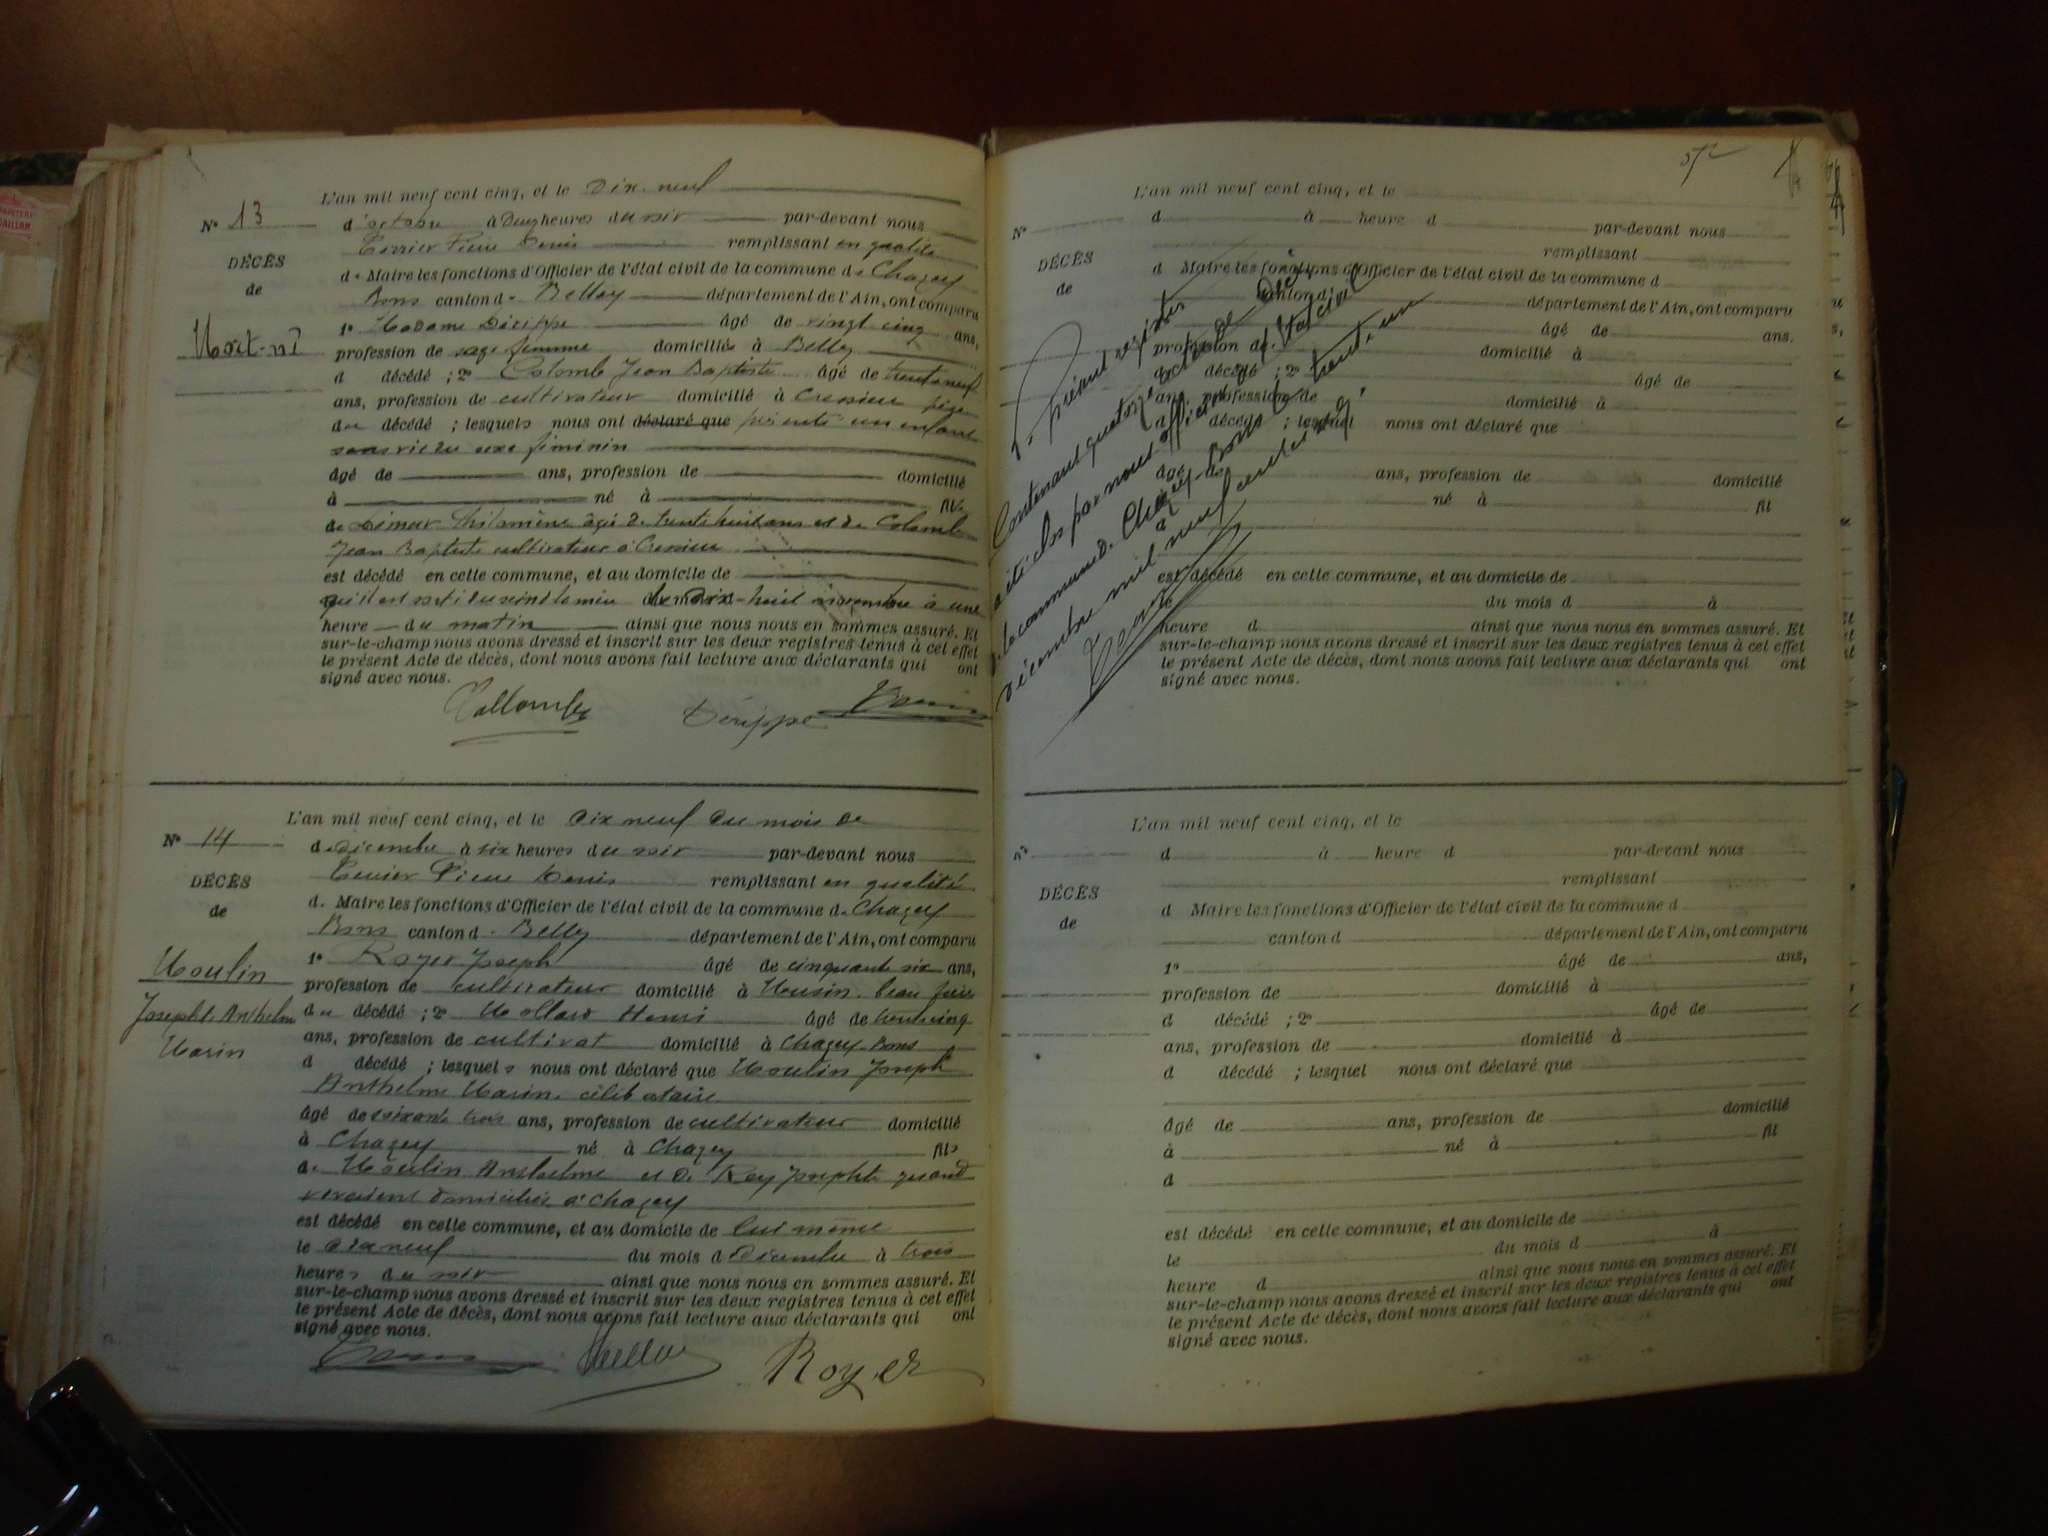 L'an mil neuf cent cinq, et le Dix-neuf
N° 13
d'octobre à Deux heures du soir par-devant nous
Terrier Pierre Denis remplissant en qualité
DÉCÈS
de Maire les fonctions d'Officier de l'état civil de la commune de Chazey
de
Bons canton de Belley département de l'Ain, ont comparu
Mort-né
1° Madame Dérippe âgé de vingt cinq ans,
profession de sage femme domiciliée à Belley
d décédé ; 2° Colomb Jean Baptiste âgé de trente neuf
ans, profession de cultivateur domicilié à Cressieu père
du décédé ; lesquels nous ont déclaré que présenté un enfant
sans vie du sexe féminin
âgé de ans, profession de domicilié
à né à fille
de Philomène âgée de trente huit ans et de Colomb
Jean Baptiste cultivateur à Cressieu
est décédé en cette commune, et au domicile de
qu'il est sorti du sein de la mère le Dix-huit novembre à une
heure du matin ainsi que nous nous en sommes assuré. Et
sur-le-champ nous avons dressé et inscrit sur les deux registres tenus à cet effet
le présent Acte de décès, dont nous avons fait lecture aux déclarants qui ont
signé avec nous.
Collomb Dérippe
L'an mil neuf cent cinq, et le dix neuf du mois de
N° 14
de Décembre à six heures du soir par-devant nous
Terrier Pierre Denis remplissant en qualité
DÉCÈS
de Maire les fonctions d'Officier de l'état civil de la commune de Chazey
de
Bons canton de Belley département de l'Ain, ont comparu
Moulin
Joseph Anthelme
Marin
1° Royer Joseph âgé de cinquante six ans,
profession de cultivateur domicilié à Musin beau frère
du décédé ; 2° Mollard Henri âgé de trente cinq
ans, profession de cultivat domicilié à Chazey-Bons
d décédé ; lesquels nous ont déclaré que Moulin Joseph
Anthelme Marin célibataire
âgé de soixante trois ans, profession de cultivateur domicilié
à Chazey né à Chazey fils
de Moulin Anthelme et de Rey Josephte quand
vivaient domiciliés à Chazey
est décédé en cette commune, et au domicile de lui même
le dix neuf du mois de Décembre à trois
heures du soir ainsi que nous nous en sommes assuré. Et
sur-le-champ nous avons dressé et inscrit sur les deux registres tenus à cet effet
le présent Acte de décès, dont nous avons fait lecture aux déclarants qui ont
signé avec nous.
Royer
L'an mil neuf cent cinq, et le
N°
d à heure d par-devant nous
remplissant
DÉCÈS
d Maire les fonctions d'Officier de l'état civil de la commune d
de
canton d département de l'Ain, ont comparu
1° âgé de ans.
profession de domicilié à
d décédé ; 2° âgé de
ans, profession de domicilié à
d décédé ; lesquel nous ont déclaré que
âgé de ans, profession de domicilié
né à fil
est décédé en cette commune, et au domicile de
le du mois d à
heure d ainsi que nous nous en sommes assuré. Et
sur-le-champ nous avons dressé et inscrit sur les deux registres tenus à cet effet
le présent Acte de décès, dont nous avons fait lecture aux déclarants qui ont
signé avec nous.
présent registre
Contenant quatorze actes de Décès
a été clos par nous officier de l'état civil
de la commune de Chazey-Bons le trente un
décembre mil neuf cent cinq
L'an mil neuf cent cinq, et le
N°
d à heure d par-devant nous
remplissant
DÉCÈS
d Maire les fonctions d'Officier de l'état civil de la commune d
de
canton d département de l'Ain, ont comparu
1° âgé de ans,
profession de domicilié à
d décédé ; 2° âgé de
ans, profession de domicilié à
d décédé ; lesquel nous ont déclaré que
âgé de ans, profession de domicilié
à né à fil
d
est décédé en cette commune, et au domicile de
le du mois d à
heure d ainsi que nous nous en sommes assuré. Et
sur-le-champ nous avons dressé et inscrit sur les deux registres tenus à cet effet
le présent Acte de décès, dont nous avons fait lecture aux déclarants qui ont
signé avec nous.